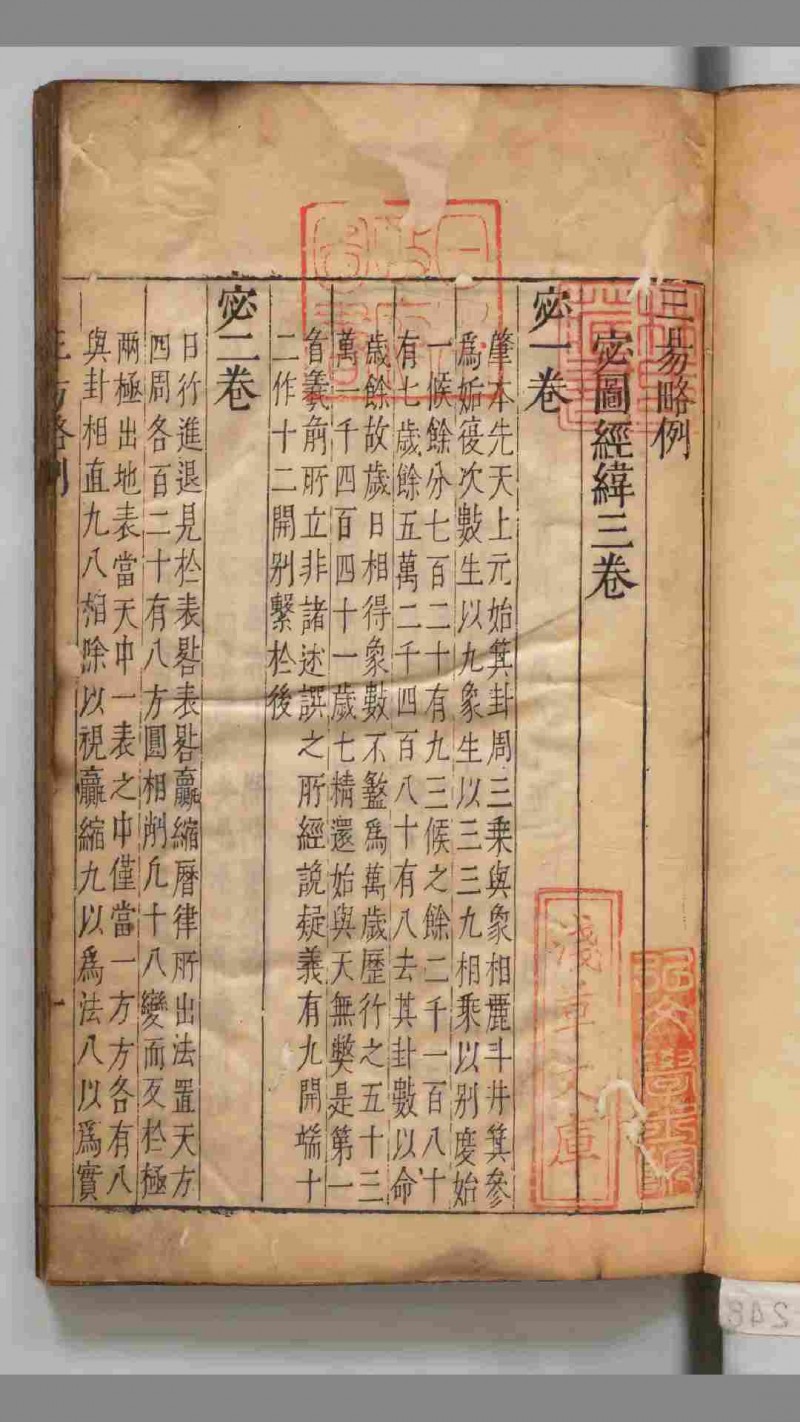 三易略例
宓圖經緯三卷
宓一卷
肇本先天上元始箕卦周三乘與象相麗斗井箕參
為姤復次數生以九象生以三三九相乘以別慶始
一候餘分七百二十有九三候之餘二千一百八十
有七歲餘五萬二千四百八十有八去其卦數以命
歲餘故歲日相得象數不盭為萬歲歷行之五十三
萬一千四百四十一歲七精還始與天無獘是第一
𥄂羲前所立非諸述譔之所經說疑義有九開端十
二作十二開別繫於後
宓二卷
日行進退見於表晷表晷贏縮曆律所出法置天方
四周各百二十有八方圓相削凡十八變而反於極
兩極出地表當天中一表之中僅當一方方各有八
與卦相直九八相除以視贏縮九以為法八以為實
三易略例
一
淺草文庫
248